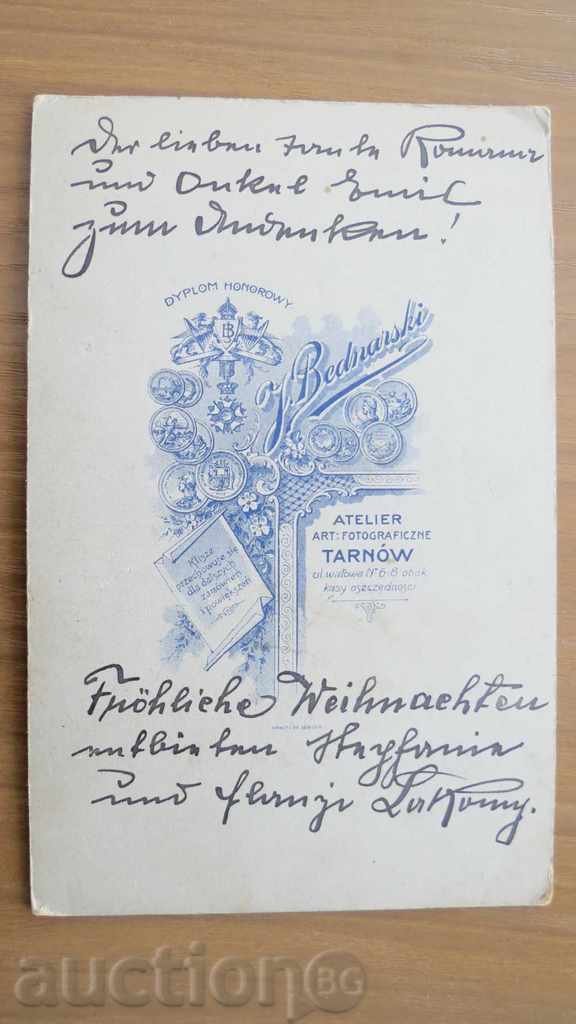 Der lieben Tante Romana
und Onkel Emil
zum Andenken!
DYPLOM HONOROWY
J. Bednarski
ATELIER
ART: FOTOGRAFICZNE
TARNÓW
ul. wałowa Nº 6-8 obok
kasy oszczędności
Klisze
przechowuje się
dla dalszych
zamówień
i powiększeń
Fröhliche Weihnachten
entbieten Stephanie
und Lakomy.
auctionBG